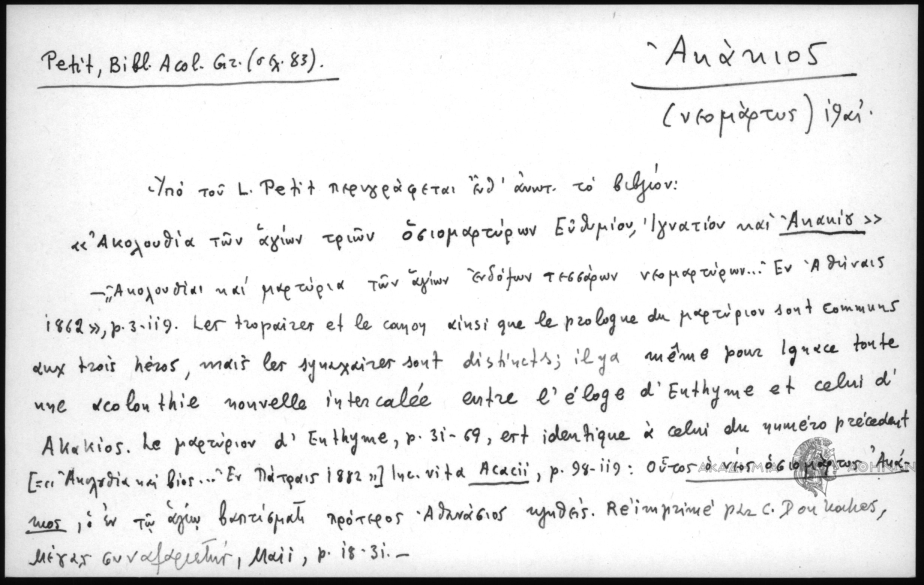 Petit, Bibl. Acol. Gr. (σελ. 83).
Ἀκάκιος
(νεομάρτυς) ιθ' αἰ.
Ὑπό τοῦ L. Petit περιγράφεται ἔνθ' ἀνωτ. τό βιβλίον:
«Ἀκολουθία τῶν ἁγίων τριῶν ὁσιομαρτύρων Εὐθυμίου, Ἰγνατίου καί Ἀκακίου»
—„Ἀκολουθίαι καί μαρτύρια τῶν ἁγίων ἐνδόξων τεσσάρων νεομαρτύρων... Ἐν Ἀθήναις
1862», p. 3-119. Les tropaires et le canon ainsi que le prologue du μαρτύριον sont communs
aux trois héros, mais les synaxaires sont distincts; il y a même pour Ignace toute
une acolouthie nouvelle intercalée entre l'éloge d'Euthyme et celui d'
Akakios. Le μαρτύριον d'Euthyme, p. 31-69, est identique à celui du numéro précédent
[=«Ἀκολυθία καί βίος... Ἐν Πάτραις 1882»] Inc. vita Acacii, p. 98-119: Οὗτος ὁ νέος ὁσιομάρτυς Ἀκά-
κιος, ὁ ἐν τῷ ἁγίῳ βαπτίσματι πρότερος Ἀθανάσιος κληθείς. Réimprimé par C. Doukakes,
Μέγας συναξαριστής, Maii, p. 18-31.—
ΑΚΑΔΗΜΙΑ ΑΘΗΝΩΝ